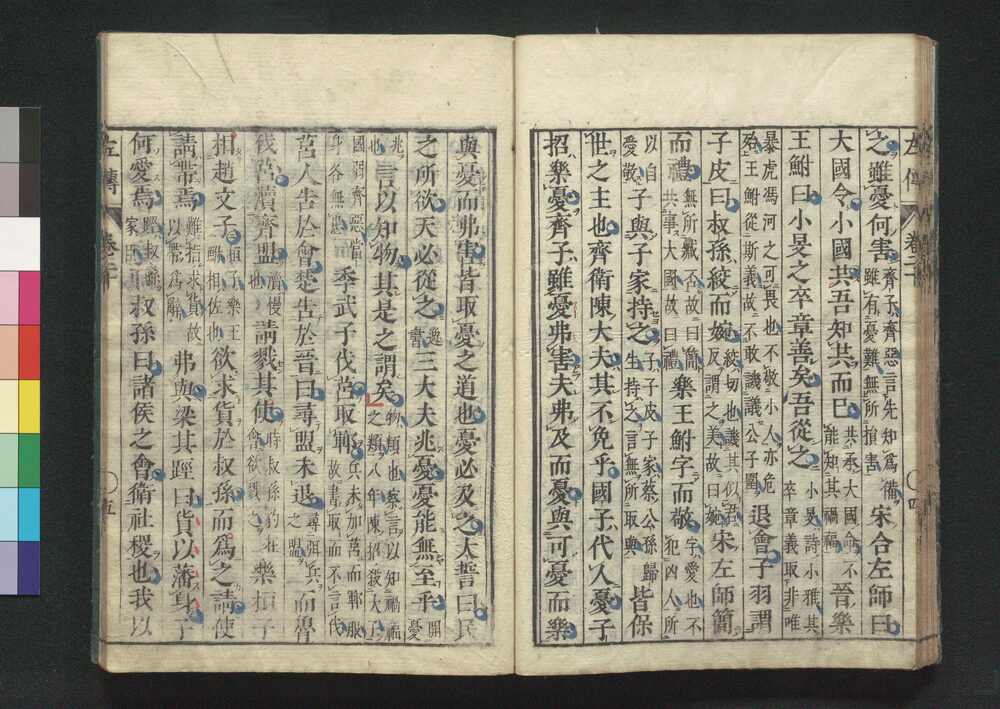 左傳 卷二十 四
之雖憂何害齊子齊惡言先知爲備雖有憂難無所損害宋合左師曰
大國令小國共吾知共而已共承大國命不能知其禍福晉樂
王鮒曰小旻之卒章善矣吾從之小旻詩小雅其卒章義取非唯
暴虎馮河之可畏也不敬小人亦危殆王鮒從斯義故不敢譏議公子圍退會子羽謂
子皮曰叔孫絞而婉絞切也譏其似君反謂之美故曰婉宋左師簡
而禮無所臧否故曰簡共事大國故曰禮樂王鮒字而敬字愛也不犯凶人所
以自愛敬子與子家持之子子皮子家蔡公孫歸生持之言無所取與皆保
世之主也齊衛陳大夫其不免乎國子代人憂子
招樂憂齊子雖憂弗害夫弗及而憂與可憂而樂
與憂而弗害皆取憂之道也憂必及之大誓曰民
之所欲天必從之逸書三大夫兆憂憂能無至乎開憂
兆也言以知物其是之謂矣物類也察言以知禍福之類八年陳招殺大子
國弱齊惡當身各無患季武子伐莒取鄆兵未加莒而鄆服故書取而不言伐
莒人告於會楚告於晉曰尋盟未退尋弭兵之盟而魯
伐莒瀆齊盟瀆慢也請戮其使時叔孫豹在會欲戮之樂桓子
相趙文子桓子樂王鮒相佐也欲求貨於叔孫而爲之請使
請帶焉難指求貨故以帶爲辭弗與梁其踁曰貨以藩身子
何愛焉踁叔孫家臣叔孫曰諸侯之會衛社稷也我以
左傳 卷二十 五